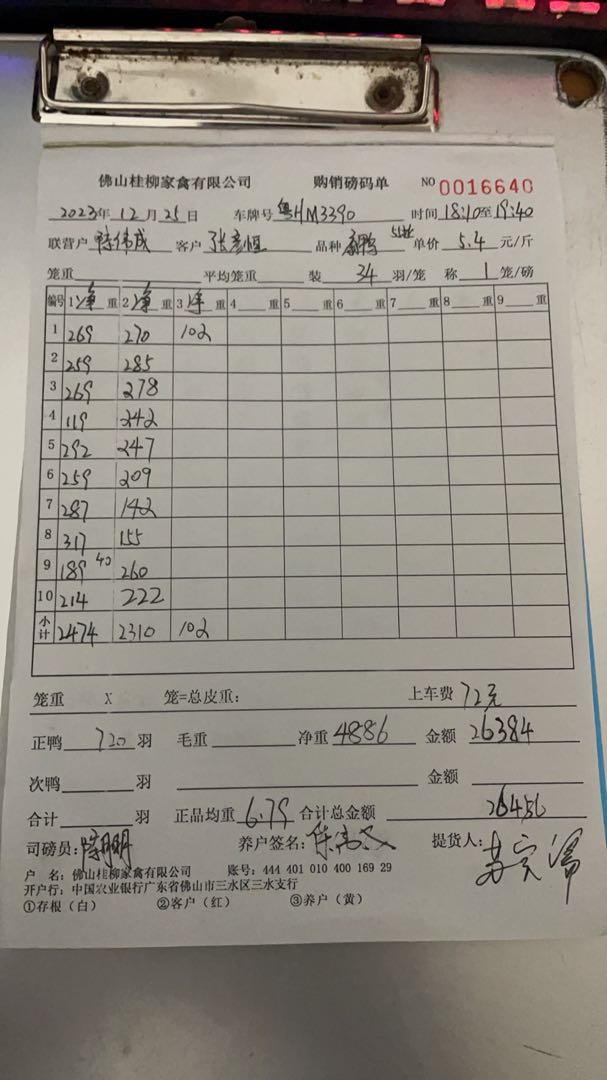 佛山桂柳家禽有限公司 购销磅码单 NO 0016640
2023年 12月 25日 车牌号 粤HM3390 时间 18:10至19:40
联营户 伟成 客户 张彦恒 品种 鸭 单价 5.4 元/斤
笼重 平均笼重 装 34 羽/笼 称 1 笼/磅
编号 1 净 重 2 净 重 3 净 重 4 重 5 重 6 重 7 重 8 重 9 重
1 269 270 102
2 259 285
3 269 278
4 119 242
5 292 247
6 259 209
7 287 142
8 317 155
9 189 40 260
10 214 222
小计 2474 2310 102
笼重 X 笼=总皮重: 上车费 72元
正鸭 720 羽 毛重 净重 4886 金额 26384
次鸭 羽 金额
合计 羽 正品均重 6.79 合计总金额 26456
司磅员: 养户签名: 提货人:
户 名: 佛山桂柳家禽有限公司 账号: 444 401 010 400 169 29
开户行: 中国农业银行广东省佛山市三水区三水支行
①存根(白) ②客户(红) ③养户(黄)